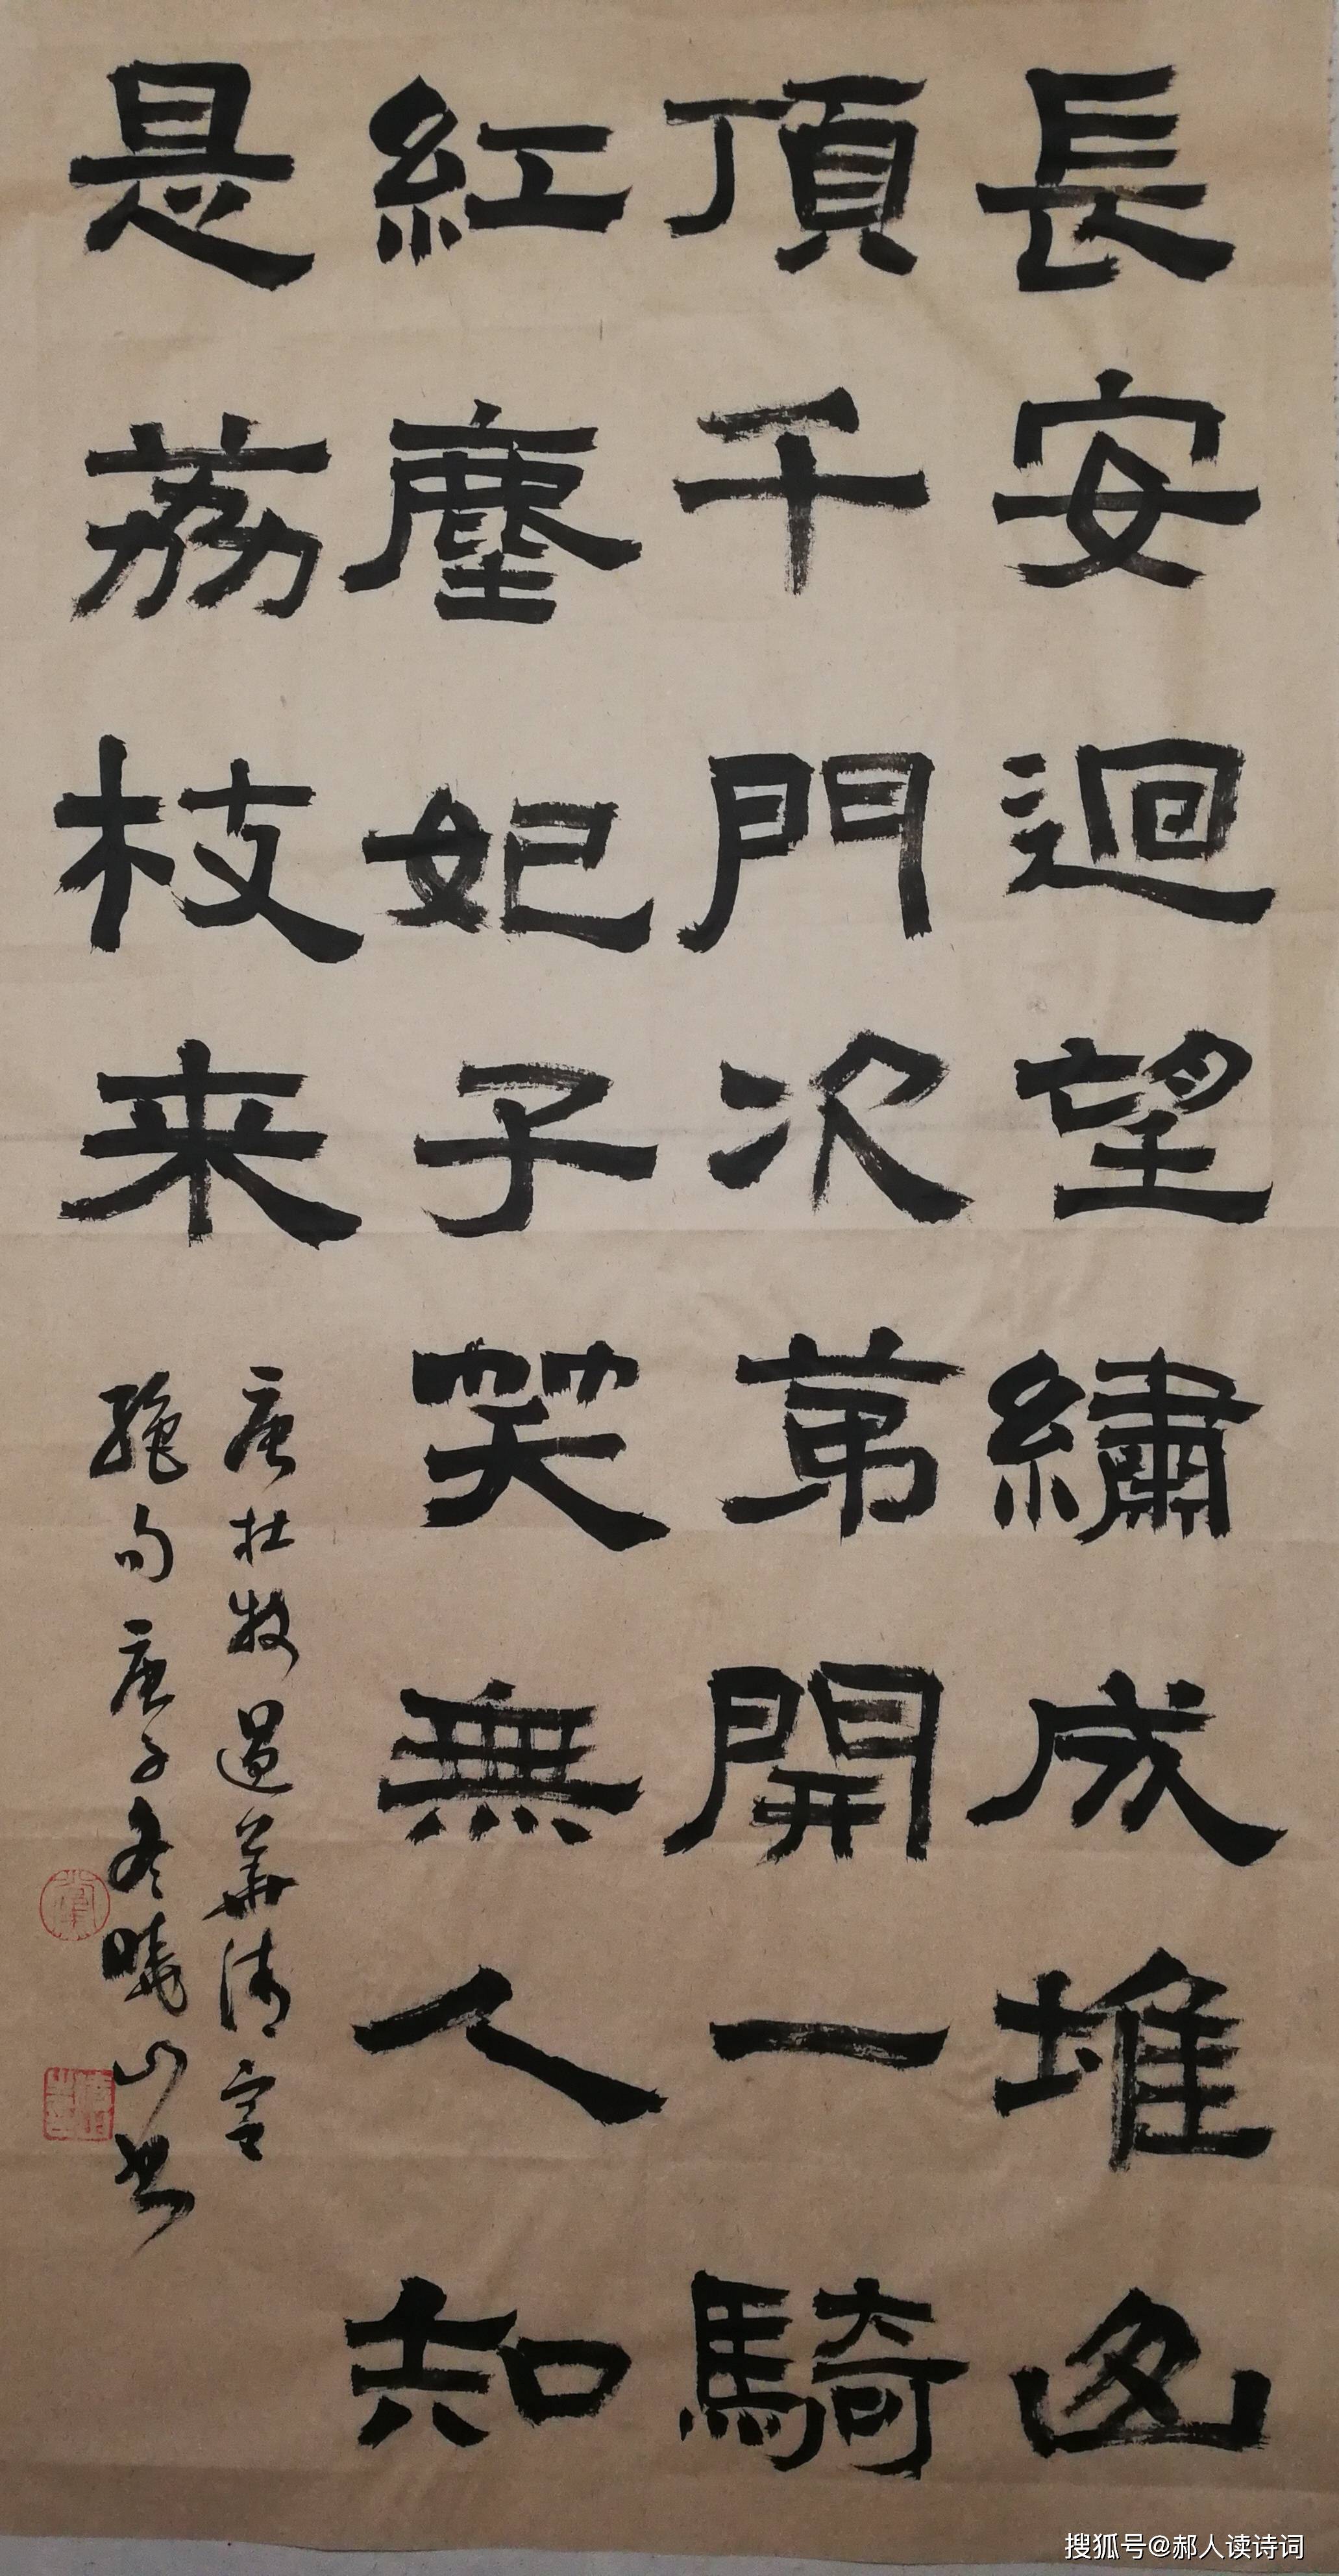 長安迴望繡成堆山
頂千門次苐開一騎
紅塵妃子笑無人知
是荔枝来
唐杜牧過華清宫
絶句庚子冬曉山书
搜狐号@郝人读诗词